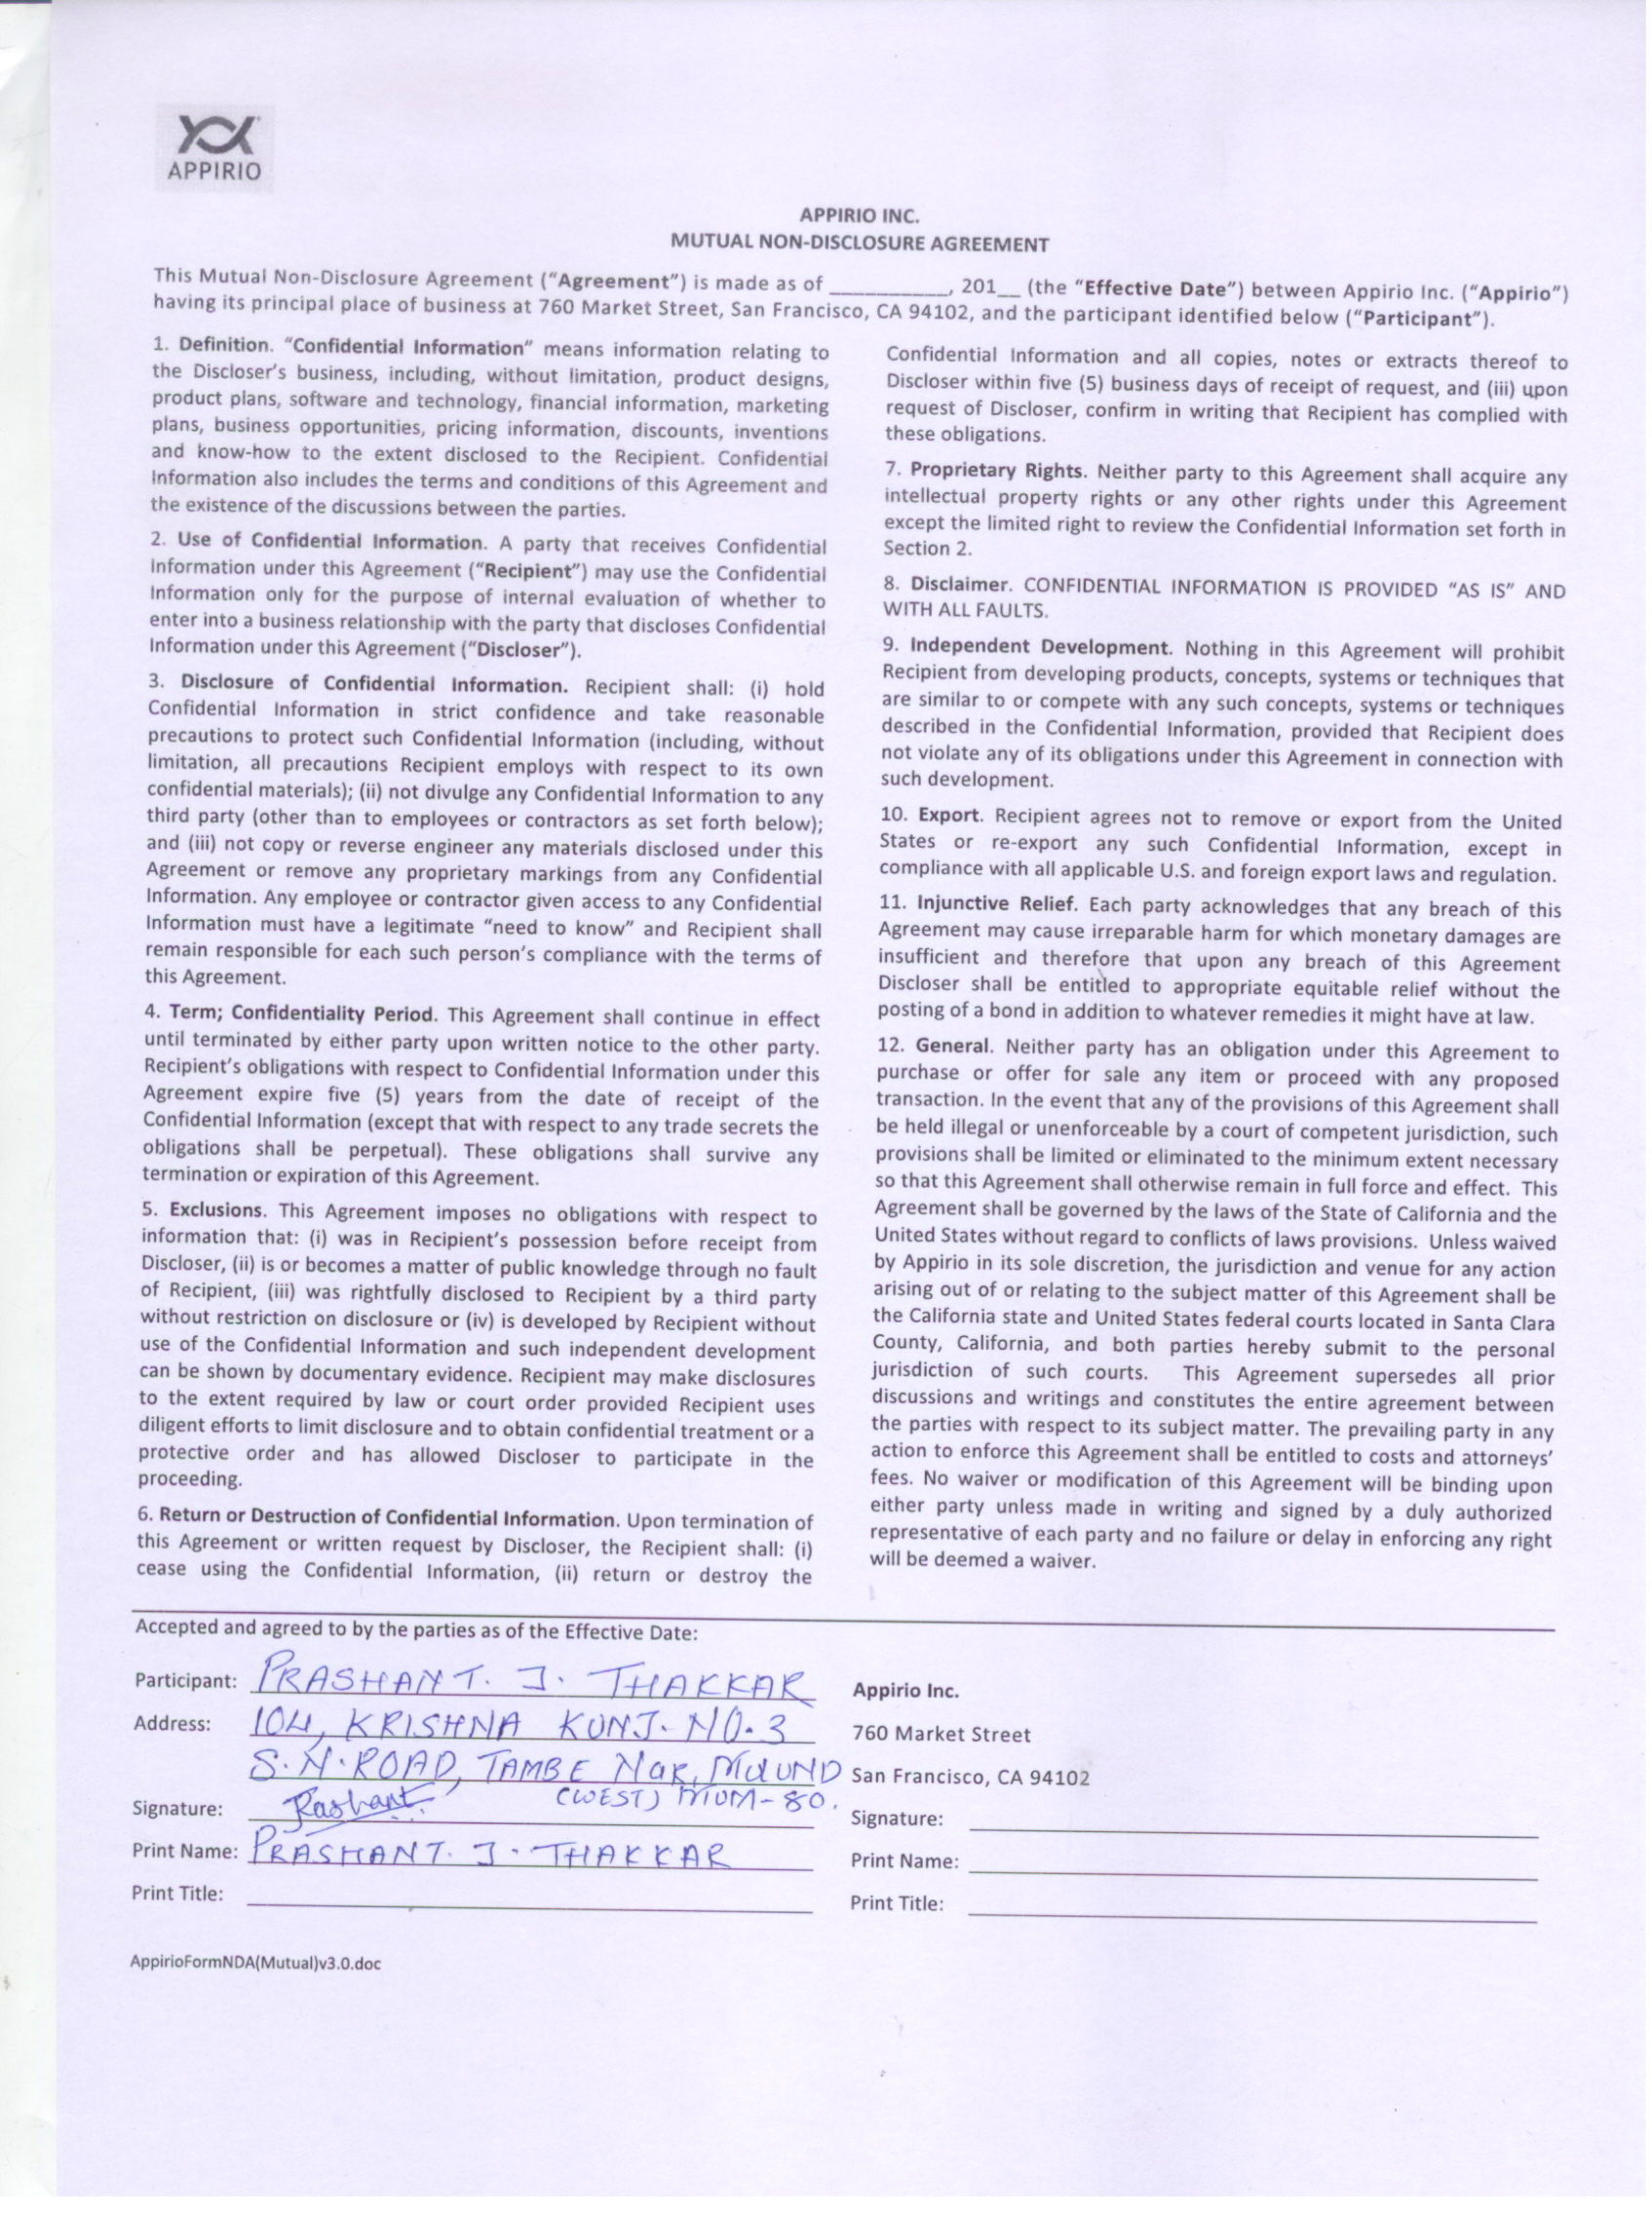 APPIRIO
APPIRIO INC.
MUTUAL NON-DISCLOSURE AGREEMENT
This Mutual Non-Disclosure Agreement (“Agreement”) is made as of __________, 201__ (the “Effective Date”) between Appirio Inc. (“Appirio”)
having its principal place of business at 760 Market Street, San Francisco, CA 94102, and the participant identified below (“Participant”).
1. Definition. “Confidential Information” means information relating to
the Discloser’s business, including, without limitation, product designs,
product plans, software and technology, financial information, marketing
plans, business opportunities, pricing information, discounts, inventions
and know-how to the extent disclosed to the Recipient. Confidential
Information also includes the terms and conditions of this Agreement and
the existence of the discussions between the parties.
2. Use of Confidential Information. A party that receives Confidential
Information under this Agreement (“Recipient”) may use the Confidential
Information only for the purpose of internal evaluation of whether to
enter into a business relationship with the party that discloses Confidential
Information under this Agreement (“Discloser”).
3. Disclosure of Confidential Information. Recipient shall: (i) hold
Confidential Information in strict confidence and take reasonable
precautions to protect such Confidential Information (including, without
limitation, all precautions Recipient employs with respect to its own
confidential materials); (ii) not divulge any Confidential Information to any
third party (other than to employees or contractors as set forth below);
and (iii) not copy or reverse engineer any materials disclosed under this
Agreement or remove any proprietary markings from any Confidential
Information. Any employee or contractor given access to any Confidential
Information must have a legitimate “need to know” and Recipient shall
remain responsible for each such person’s compliance with the terms of
this Agreement.
4. Term; Confidentiality Period. This Agreement shall continue in effect
until terminated by either party upon written notice to the other party.
Recipient’s obligations with respect to Confidential Information under this
Agreement expire five (5) years from the date of receipt of the
Confidential Information (except that with respect to any trade secrets the
obligations shall be perpetual). These obligations shall survive any
termination or expiration of this Agreement.
5. Exclusions. This Agreement imposes no obligations with respect to
information that: (i) was in Recipient’s possession before receipt from
Discloser, (ii) is or becomes a matter of public knowledge through no fault
of Recipient, (iii) was rightfully disclosed to Recipient by a third party
without restriction on disclosure or (iv) is developed by Recipient without
use of the Confidential Information and such independent development
can be shown by documentary evidence. Recipient may make disclosures
to the extent required by law or court order provided Recipient uses
diligent efforts to limit disclosure and to obtain confidential treatment or a
protective order and has allowed Discloser to participate in the
proceeding.
6. Return or Destruction of Confidential Information. Upon termination of
this Agreement or written request by Discloser, the Recipient shall: (i)
cease using the Confidential Information, (ii) return or destroy the
Confidential Information and all copies, notes or extracts thereof to
Discloser within five (5) business days of receipt of request, and (iii) upon
request of Discloser, confirm in writing that Recipient has complied with
these obligations.
7. Proprietary Rights. Neither party to this Agreement shall acquire any
intellectual property rights or any other rights under this Agreement
except the limited right to review the Confidential Information set forth in
Section 2.
8. Disclaimer. CONFIDENTIAL INFORMATION IS PROVIDED “AS IS” AND
WITH ALL FAULTS.
9. Independent Development. Nothing in this Agreement will prohibit
Recipient from developing products, concepts, systems or techniques that
are similar to or compete with any such concepts, systems or techniques
described in the Confidential Information, provided that Recipient does
not violate any of its obligations under this Agreement in connection with
such development.
10. Export. Recipient agrees not to remove or export from the United
States or re-export any such Confidential Information, except in
compliance with all applicable U.S. and foreign export laws and regulation.
11. Injunctive Relief. Each party acknowledges that any breach of this
Agreement may cause irreparable harm for which monetary damages are
insufficient and therefore that upon any breach of this Agreement
Discloser shall be entitled to appropriate equitable relief without the
posting of a bond in addition to whatever remedies it might have at law.
12. General. Neither party has an obligation under this Agreement to
purchase or offer for sale any item or proceed with any proposed
transaction. In the event that any of the provisions of this Agreement shall
be held illegal or unenforceable by a court of competent jurisdiction, such
provisions shall be limited or eliminated to the minimum extent necessary
so that this Agreement shall otherwise remain in full force and effect. This
Agreement shall be governed by the laws of the State of California and the
United States without regard to conflicts of laws provisions. Unless waived
by Appirio in its sole discretion, the jurisdiction and venue for any action
arising out of or relating to the subject matter of this Agreement shall be
the California state and United States federal courts located in Santa Clara
County, California, and both parties hereby submit to the personal
jurisdiction of such courts. This Agreement supersedes all prior
discussions and writings and constitutes the entire agreement between
the parties with respect to its subject matter. The prevailing party in any
action to enforce this Agreement shall be entitled to costs and attorneys’
fees. No waiver or modification of this Agreement will be binding upon
either party unless made in writing and signed by a duly authorized
representative of each party and no failure or delay in enforcing any right
will be deemed a waiver.
Accepted and agreed to by the parties as of the Effective Date:
Participant: PRASHANT. J. THAKKAR
Address: 104, KRISHNA KUNJ. NO.3
S.N.ROAD, TAMBE NAR, MULUND
(WEST) MUM-80.
Signature: Prashant
Print Name: PRASHANT. J. THAKKAR
Print Title:
Appirio Inc.
760 Market Street
San Francisco, CA 94102
Signature:
Print Name:
Print Title:
AppirioFormNDA(Mutual)v3.0.doc